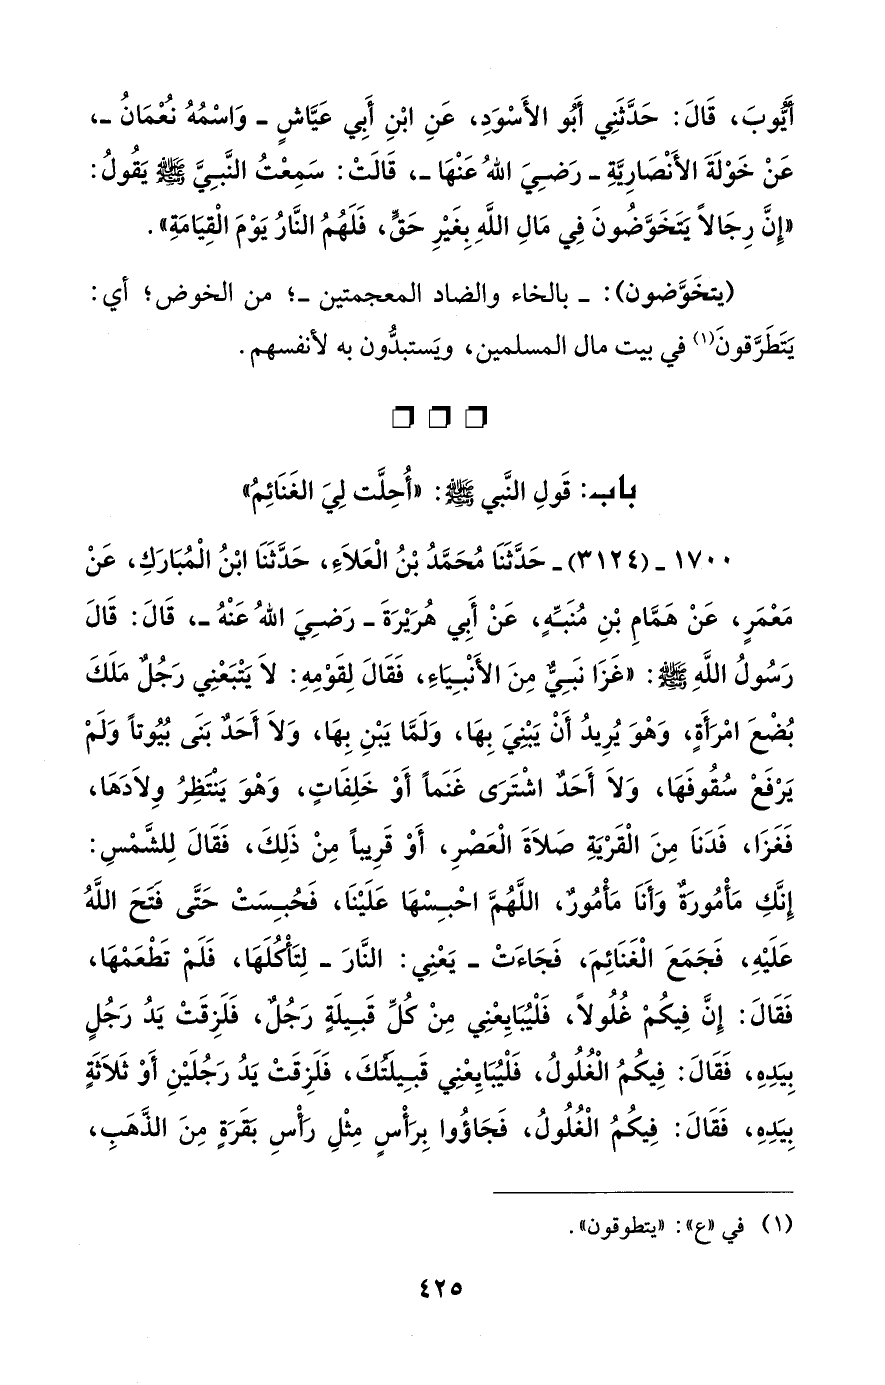 أَيُّوبَ، قَالَ: حَدَّثَنِي أَبُو الأَسْوَدِ، عَنِ ابْنِ أَبِي عَيَّاشٍ ـ وَاسْمُهُ نُعْمَانُ ـ،
عَنْ خَوْلَةَ الأَنْصَارِيَّةِ ـ رَضِيَ اللهُ عَنْهَا ـ، قَالَتْ: سَمِعْتُ النَّبِيَّ ﷺ يَقُولُ:
«إِنَّ رِجَالاً يَتَخَوَّضُونَ فِي مَالِ اللَّهِ بِغَيْرِ حَقٍّ، فَلَهُمُ النَّارُ يَوْمَ الْقِيَامَةِ».
(يتخَوَّضون): ـ بالخاء والضاد المعجمتين ـ؛ من الخوض؛ أي:
يَتَطَرَّقونَ(١) في بيت مال المسلمين، ويَستبدُّون به لأنفسهم.
❒ ❒ ❒
باب: قَولِ النَّبي ﷺ: «أُحِلَّت لِيَ الغَنَائِمُ»
١٧٠٠ ـ (٣١٢٤) ـ حَدَّثَنَا مُحَمَّدُ بْنُ الْعَلاَءِ، حَدَّثَنَا ابْنُ الْمُبَارَكِ، عَنْ
مَعْمَرٍ، عَنْ هَمَّامِ بْنِ مُنَبِّهٍ، عَنْ أَبِي هُرَيْرَةَ ـ رَضِيَ اللهُ عَنْهُ ـ، قَالَ: قَالَ
رَسُولُ اللَّهِ ﷺ: «غَزَا نَبِيٌّ مِنَ الأَنْبِيَاءِ، فَقَالَ لِقَوْمِهِ: لاَ يَتْبَعْنِي رَجُلٌ مَلَكَ
بُضْعَ امْرَأَةٍ، وَهْوَ يُرِيدُ أَنْ يَبْنِيَ بِهَا، وَلَمَّا يَبْنِ بِهَا، وَلاَ أَحَدٌ بَنَى بُيُوتاً وَلَمْ
يَرْفَعْ سُقُوفَهَا، وَلاَ أَحَدٌ اشْتَرَى غَنَماً أَوْ خَلِفَاتٍ، وَهْوَ يَنْتَظِرُ وِلاَدَهَا،
فَغَزَا، فَدَنَا مِنَ الْقَرْيَةِ صَلاَةَ الْعَصْرِ، أَوْ قَرِيباً مِنْ ذَلِكَ، فَقَالَ لِلشَّمْسِ:
إِنَّكِ مَأْمُورَةٌ وَأَنَا مَأْمُورٌ، اللَّهُمَّ احْبِسْهَا عَلَيْنَا، فَحُبِسَتْ حَتَّى فَتَحَ اللَّهُ
عَلَيْهِ، فَجَمَعَ الْغَنَائِمَ، فَجَاءَتْ ـ يَعْنِي: النَّارَ ـ لِتَأْكُلَهَا، فَلَمْ تَطْعَمْهَا،
فَقَالَ: إِنَّ فِيكُمْ غُلُولاً، فَلْيُبَايِعْنِي مِنْ كُلِّ قَبِيلَةٍ رَجُلٌ، فَلَزِقَتْ يَدُ رَجُلٍ
بِيَدِهِ، فَقَالَ: فِيكُمُ الْغُلُولُ، فَلْيُبَايِعْنِي قَبِيلَتُكَ، فَلَزِقَتْ يَدُ رَجُلَيْنِ أَوْ ثَلاَثَةٍ
بِيَدِهِ، فَقَالَ: فِيكُمُ الْغُلُولُ، فَجَاؤُوا بِرَأْسٍ مِثْلِ رَأْسِ بَقَرَةٍ مِنَ الذَّهَبِ،
(١) في «ع»: «يتطوقون».
٤٢٥